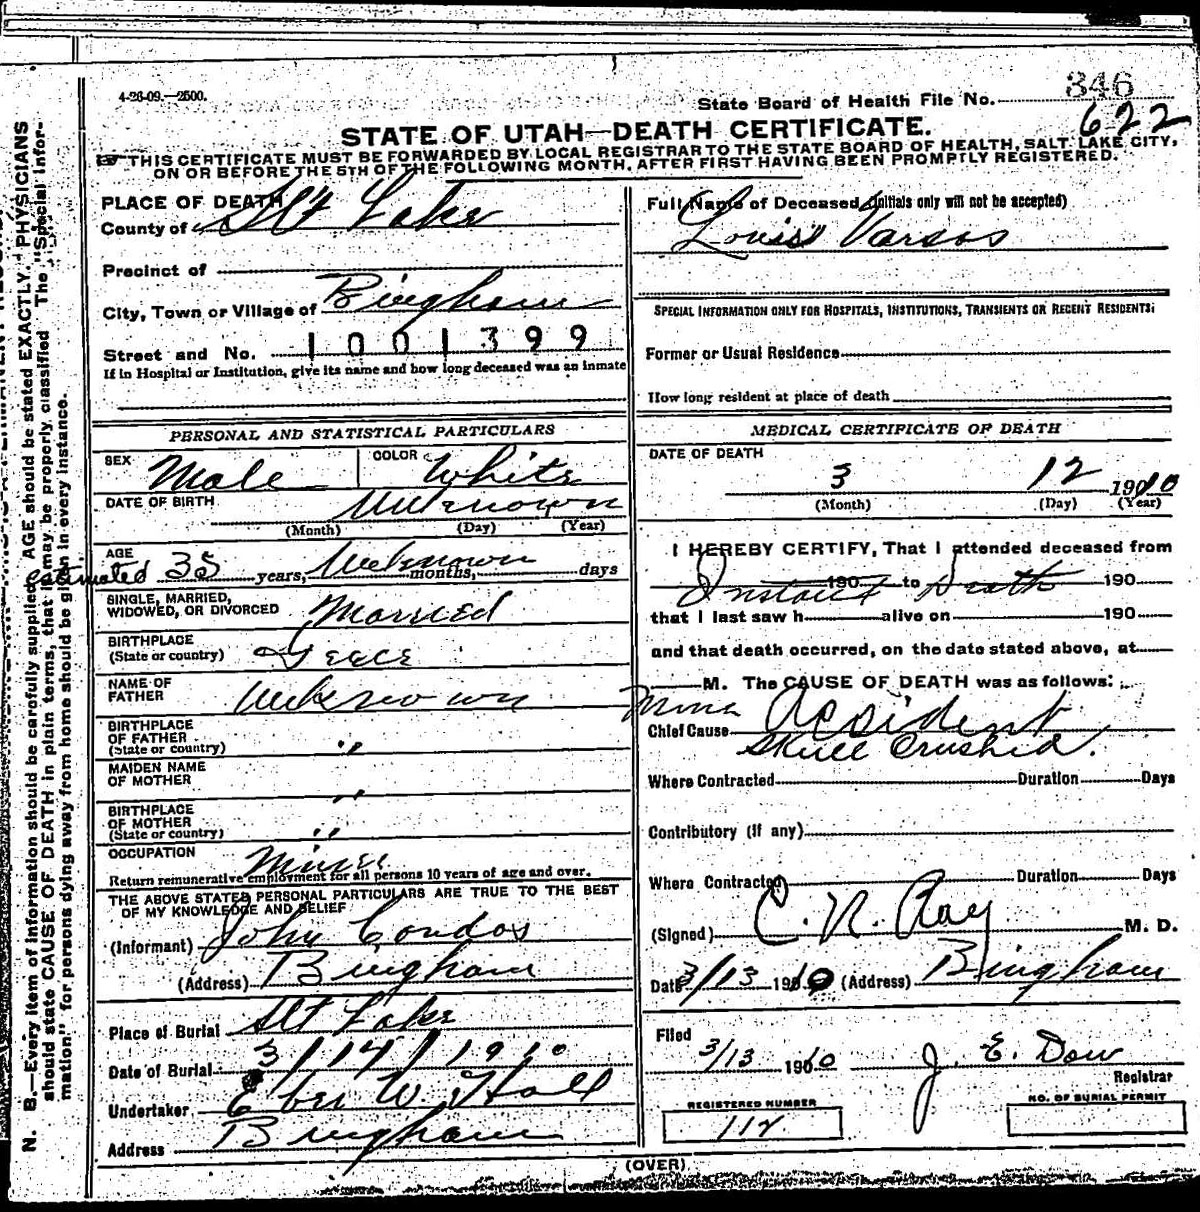 4-26-09.—2500.
State Board of Health File No. 346
622
STATE OF UTAH—DEATH CERTIFICATE.
THIS CERTIFICATE MUST BE FORWARDED BY LOCAL REGISTRAR TO THE STATE BOARD OF HEALTH, SALT LAKE CITY,
ON OR BEFORE THE 5TH OF THE FOLLOWING MONTH, AFTER FIRST HAVING BEEN PROMPTLY REGISTERED.
PLACE OF DEATH
County of Slt Lake
Precinct of
City, Town or Village of Bingham
Street and No. 1001399
If in Hospital or Institution, give its name and how long deceased was an inmate
PERSONAL AND STATISTICAL PARTICULARS
SEX Male COLOR White
DATE OF BIRTH Unknown
(Month) (Day) (Year)
AGE
estimated 35 years, Unknown months, days
SINGLE, MARRIED,
WIDOWED, OR DIVORCED Married
BIRTHPLACE
(State or country) Greece
NAME OF
FATHER Unknown
BIRTHPLACE
OF FATHER
(State or country) "
MAIDEN NAME
OF MOTHER "
BIRTHPLACE
OF MOTHER
(State or country) "
OCCUPATION Miner
Return remunerative employment for all persons 10 years of age and over.
THE ABOVE STATED PERSONAL PARTICULARS ARE TRUE TO THE BEST
OF MY KNOWLEDGE AND BELIEF
(Informant) John Condos
(Address) Bingham
Place of Burial Slt Lake
Date of Burial 3/14/1910
Undertaker Eber W. Hall
Address Bingham
Full Name of Deceased (Initials only will not be accepted)
Louis Vargos
SPECIAL INFORMATION ONLY FOR HOSPITALS, INSTITUTIONS, TRANSIENTS OR RECENT RESIDENTS:
Former or Usual Residence
How long resident at place of death
MEDICAL CERTIFICATE OF DEATH
DATE OF DEATH
3 12 1910
(Month) (Day) (Year)
I HEREBY CERTIFY, That I attended deceased from
Instant 190 to Death 190
that I last saw h alive on 190
and that death occurred, on the date stated above, at
M. The CAUSE OF DEATH was as follows:
Chief Cause Mine Accident
Skull Crushed.
Where Contracted Duration Days
Contributory (if any)
Where Contracted Duration Days
(Signed) C. N. Ray M. D.
Date 3/13 1910 (Address) Bingham
Filed
3/13 1910 J. E. Dow
Registrar
REGISTERED NUMBER
112
NO. OF BURIAL PERMIT
(OVER)
N. B.—Every item of information should be carefully supplied. AGE should be stated EXACTLY. PHYSICIANS
should state CAUSE OF DEATH in plain terms, that it may be properly classified. The "Special Infor-
mation" for persons dying away from home should be given in every instance.